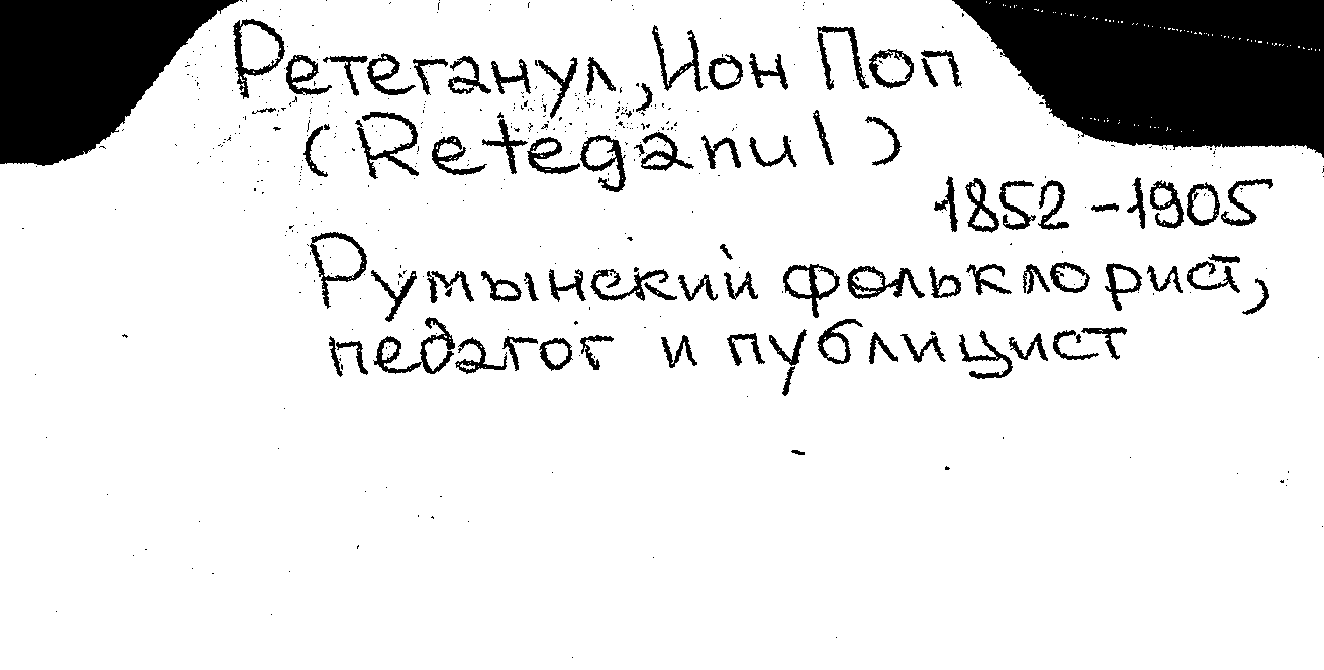 Ретеганул, Ион Поп
(Reteganul)
1852-1905
Румынский фольклорист,
педагог и публицист